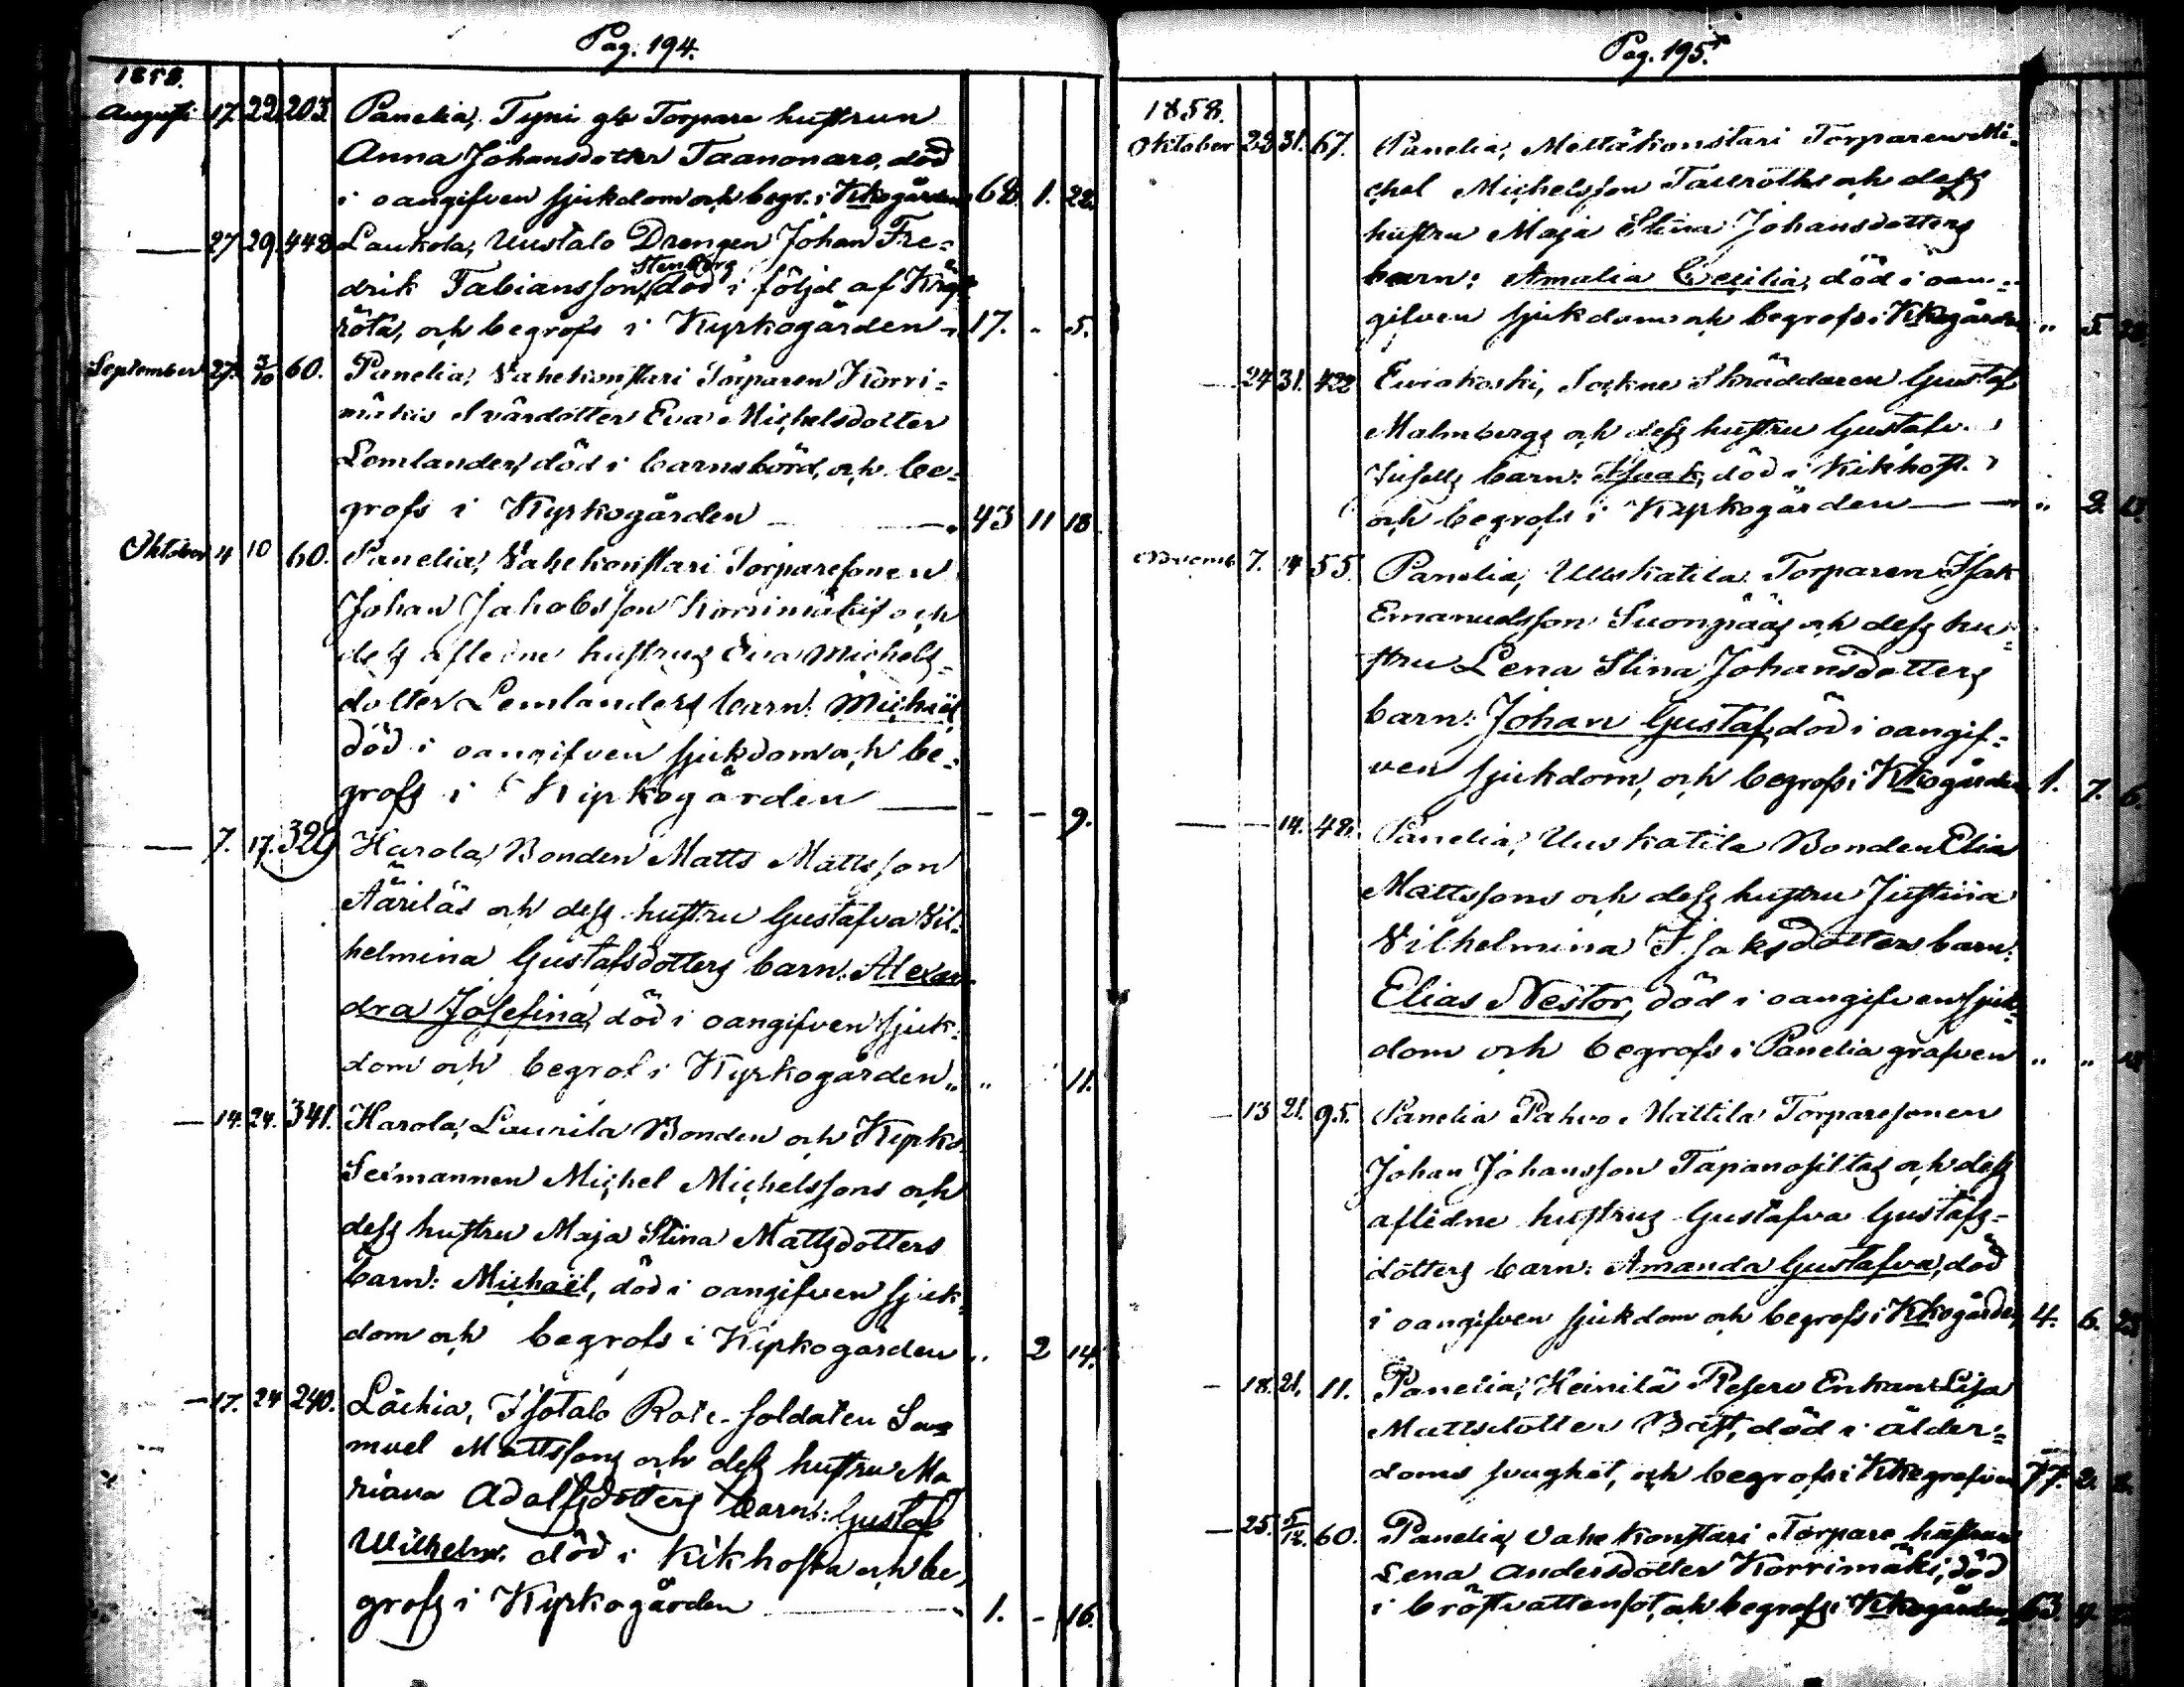 Pag. 194.
1858.
Augusti 17. 22. 203. Panelia, Tyni gla Torpare hustrun
Anna Johansdotter Taanonaro, död
i oangifven sjukdom och begr. i Kkogården 68. 1. 22.
— 27. 29. 448 Laukola, Uustalo Drengen Johan Fre=
drik Fabiansson, Stenberg död i följd af Kräft
röta, och begrofs i Kyrkogården 17. - 5.
September 27. 3/10 60. Panelia, Vahekonstari Torparen Korri=
mäkis Svärdotter Eva Michelsdotter
Lemlander, död i barnsbörd, och be=
grofs i Kyrkogården — 43 11 18
Oktober 4 10 60. Panelia, Vahekonstari Torparesonen
Johan Jakobsson Korrimäkis och
dess aflidne hustrus Eva Michels=
dotter Lemlanders barn: Michaël
död i oangifven sjukdom och be=
grofs i Kyrkogården — - - 9.
— 7. 17. 329 Harola, Bonden Matts Mattsson
Ääriläs och dess hustru Gustafva Vil=
helmina Gustafsdotters barn: Alexan
dra Josefina, död i oangifven sjuk=
dom och begrof i Kyrkogården „ „ 11.
— 14. 24. 341. Harola, Laurila Bonden och Kyrko
Sexmannen Michel Michelssons och
dess hustru Maja Stina Mattsdotters
barn: Michaël, död i oangifven sjuk=
dom och begrofs i Kyrkogården „ 2 14.
— 17. 24 240. Lächia, Isotalo Rote-soldaten Sa=
muel Mattssons och dess hustru Ma
riana Adolfsdotters barn: Gustaf
Wilhelm, död i Kikhosta och be=
grofs i Kyrkogården — 1. - 16.
Pag. 195.
1858.
Oktober 23 31. 67. Panelia, Mettäkonstari Torparen Mi=
chel Michelsson Tallroths och dess
hustru Maja Stina Johansdotters
barn: Amalia Cecilia, död i oan=
gifven sjukdom och begrofs i Kkogården „ 5.
— 24 31. 428 Eurakoski, Sockne Skräddaren Gustaf
Malmbergs och dess hustru Gustafv.
barn: Isaak, död i Kikhost.
och begrofs i Kyrkogården — „ 2.
Novemb 7. 14 55. Panelia, Uuskatila Torparen Isak
Emanuelsson Suonpääs och dess hu=
stru Lena Stina Johansdotters
barn: Johan Gustaf, död i oangif=
ven sjukdom, och begrofs i Kkogården 1. 7. 6.
— — 14. 48. Panelia, Uuskatila Bonden Elia
Mattssons och dess hustru Justina
Vilhelmina Isaksdotters barn:
Elias Nestor, död i oangifven sjuk=
dom och begrofs i Panelia grafven „ „
— 13 21. 95. Panelia Pahvo Mattila Torparesonen
Johan Johansson Tapanosiltas och dess
aflidne hustrus Gustafva Gustafs=
dotters barn: Amanda Gustafva, död
i oangifven sjukdom och begrofs i Kkogården 4. 6.
— 18. 21. 11. Panelia, Heinilä Reserv Enkan Lisa
Mattsdotter Bäst, död i ålder=
doms svaghet, och begrofs i Kkegrafven 77. 2.
— 25. 5/12. 60. Panelia, Vahekonstari Torpare hustrun
Lena Andersdotter Korrimäki, död
i bröstvattensot, och begrofs i Kkogården 63.